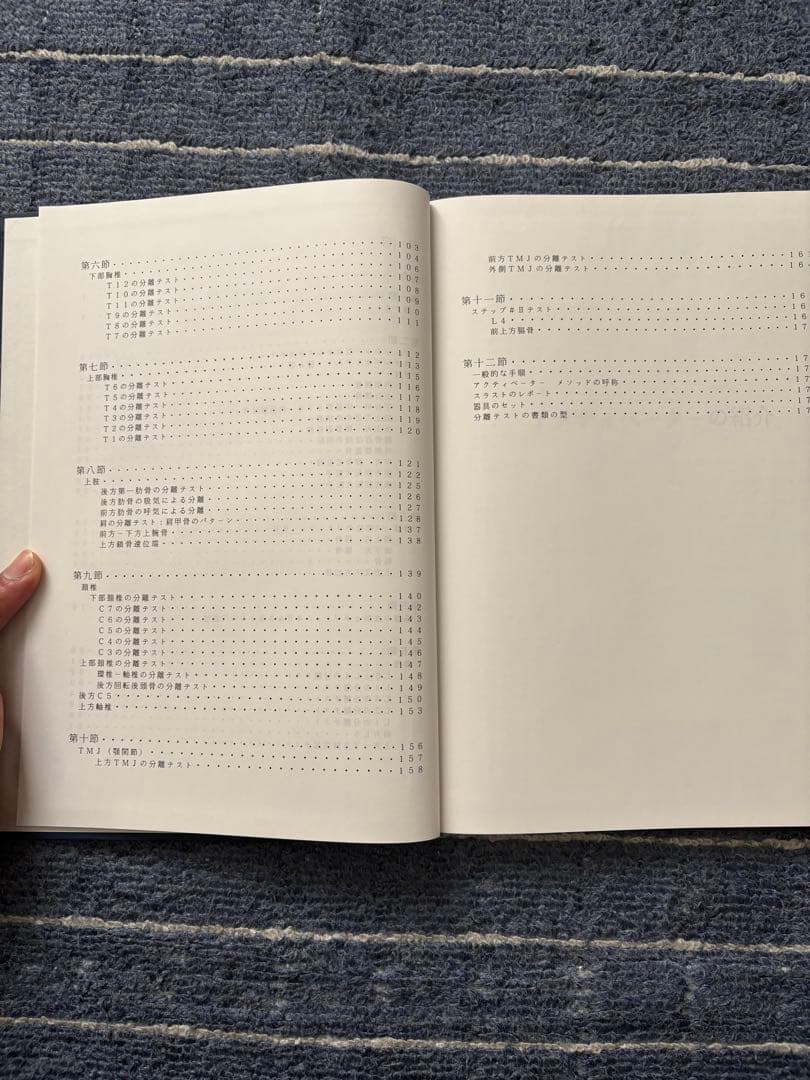 第六節・・・・・・・・・・・・・・・・・・・・・・・・103
下部胸椎・・・・・・・・・・・・・・・・・・・・・・・104
T12の分離テスト・・・・・・・・・・・・・・・・・・106
T10の分離テスト・・・・・・・・・・・・・・・・・・107
T11の分離テスト・・・・・・・・・・・・・・・・・・108
T9の分離テスト・・・・・・・・・・・・・・・・・・・109
T8の分離テスト・・・・・・・・・・・・・・・・・・・110
T7の分離テスト・・・・・・・・・・・・・・・・・・・111
第七節・・・・・・・・・・・・・・・・・・・・・・・・112
上部胸椎・・・・・・・・・・・・・・・・・・・・・・・113
T6の分離テスト・・・・・・・・・・・・・・・・・・・115
T5の分離テスト・・・・・・・・・・・・・・・・・・・116
T4の分離テスト・・・・・・・・・・・・・・・・・・・117
T3の分離テスト・・・・・・・・・・・・・・・・・・・118
T2の分離テスト・・・・・・・・・・・・・・・・・・・119
T1の分離テスト・・・・・・・・・・・・・・・・・・・120
第八節・・・・・・・・・・・・・・・・・・・・・・・・121
上肢・・・・・・・・・・・・・・・・・・・・・・・・・122
後方第一肋骨の分離テスト・・・・・・・・・・・・・・・125
後方肋骨の吸気による分離・・・・・・・・・・・・・・・126
前方肋骨の呼気による分離・・・・・・・・・・・・・・・127
肩の分離テスト:肩甲骨のパターン・・・・・・・・・・・128
前方−下方上腕骨・・・・・・・・・・・・・・・・・・・137
上方鎖骨遠位端・・・・・・・・・・・・・・・・・・・・138
第九節・・・・・・・・・・・・・・・・・・・・・・・・139
頚椎
下部頚椎の分離テスト・・・・・・・・・・・・・・・・・140
C7の分離テスト・・・・・・・・・・・・・・・・・・・142
C6の分離テスト・・・・・・・・・・・・・・・・・・・143
C5の分離テスト・・・・・・・・・・・・・・・・・・・144
C4の分離テスト・・・・・・・・・・・・・・・・・・・145
C3の分離テスト・・・・・・・・・・・・・・・・・・・146
上部頚椎の分離テスト・・・・・・・・・・・・・・・・・147
環椎−軸椎の分離テスト・・・・・・・・・・・・・・・・148
後方回転後頭骨の分離テスト・・・・・・・・・・・・・・149
後方C5・・・・・・・・・・・・・・・・・・・・・・・150
上方軸椎・・・・・・・・・・・・・・・・・・・・・・・153
第十節・・・・・・・・・・・・・・・・・・・・・・・・156
TMJ(顎関節)・・・・・・・・・・・・・・・・・・・・157
上方TMJの分離テスト・・・・・・・・・・・・・・・・158
前方TMJの分離テスト・・・・・・・・・・・・・・・・16
外側TMJの分離テスト・・・・・・・・・・・・・・・・16
第十一節・・・・・・・・・・・・・・・・・・・・・・・16
ステップ#Ⅱテスト・・・・・・・・・・・・・・・・・・16
L4・・・・・・・・・・・・・・・・・・・・・・・・・16
前上方腸骨・・・・・・・・・・・・・・・・・・・・・・17
第十二節・・・・・・・・・・・・・・・・・・・・・・・17
一般的な手順・・・・・・・・・・・・・・・・・・・・・17
アクティベーター メソッドの呼称・・・・・・・・・・・17
スラストのレポート・・・・・・・・・・・・・・・・・・17
器具のセット・・・・・・・・・・・・・・・・・・・・・17
分離テストの書類の型・・・・・・・・・・・・・・・・・17